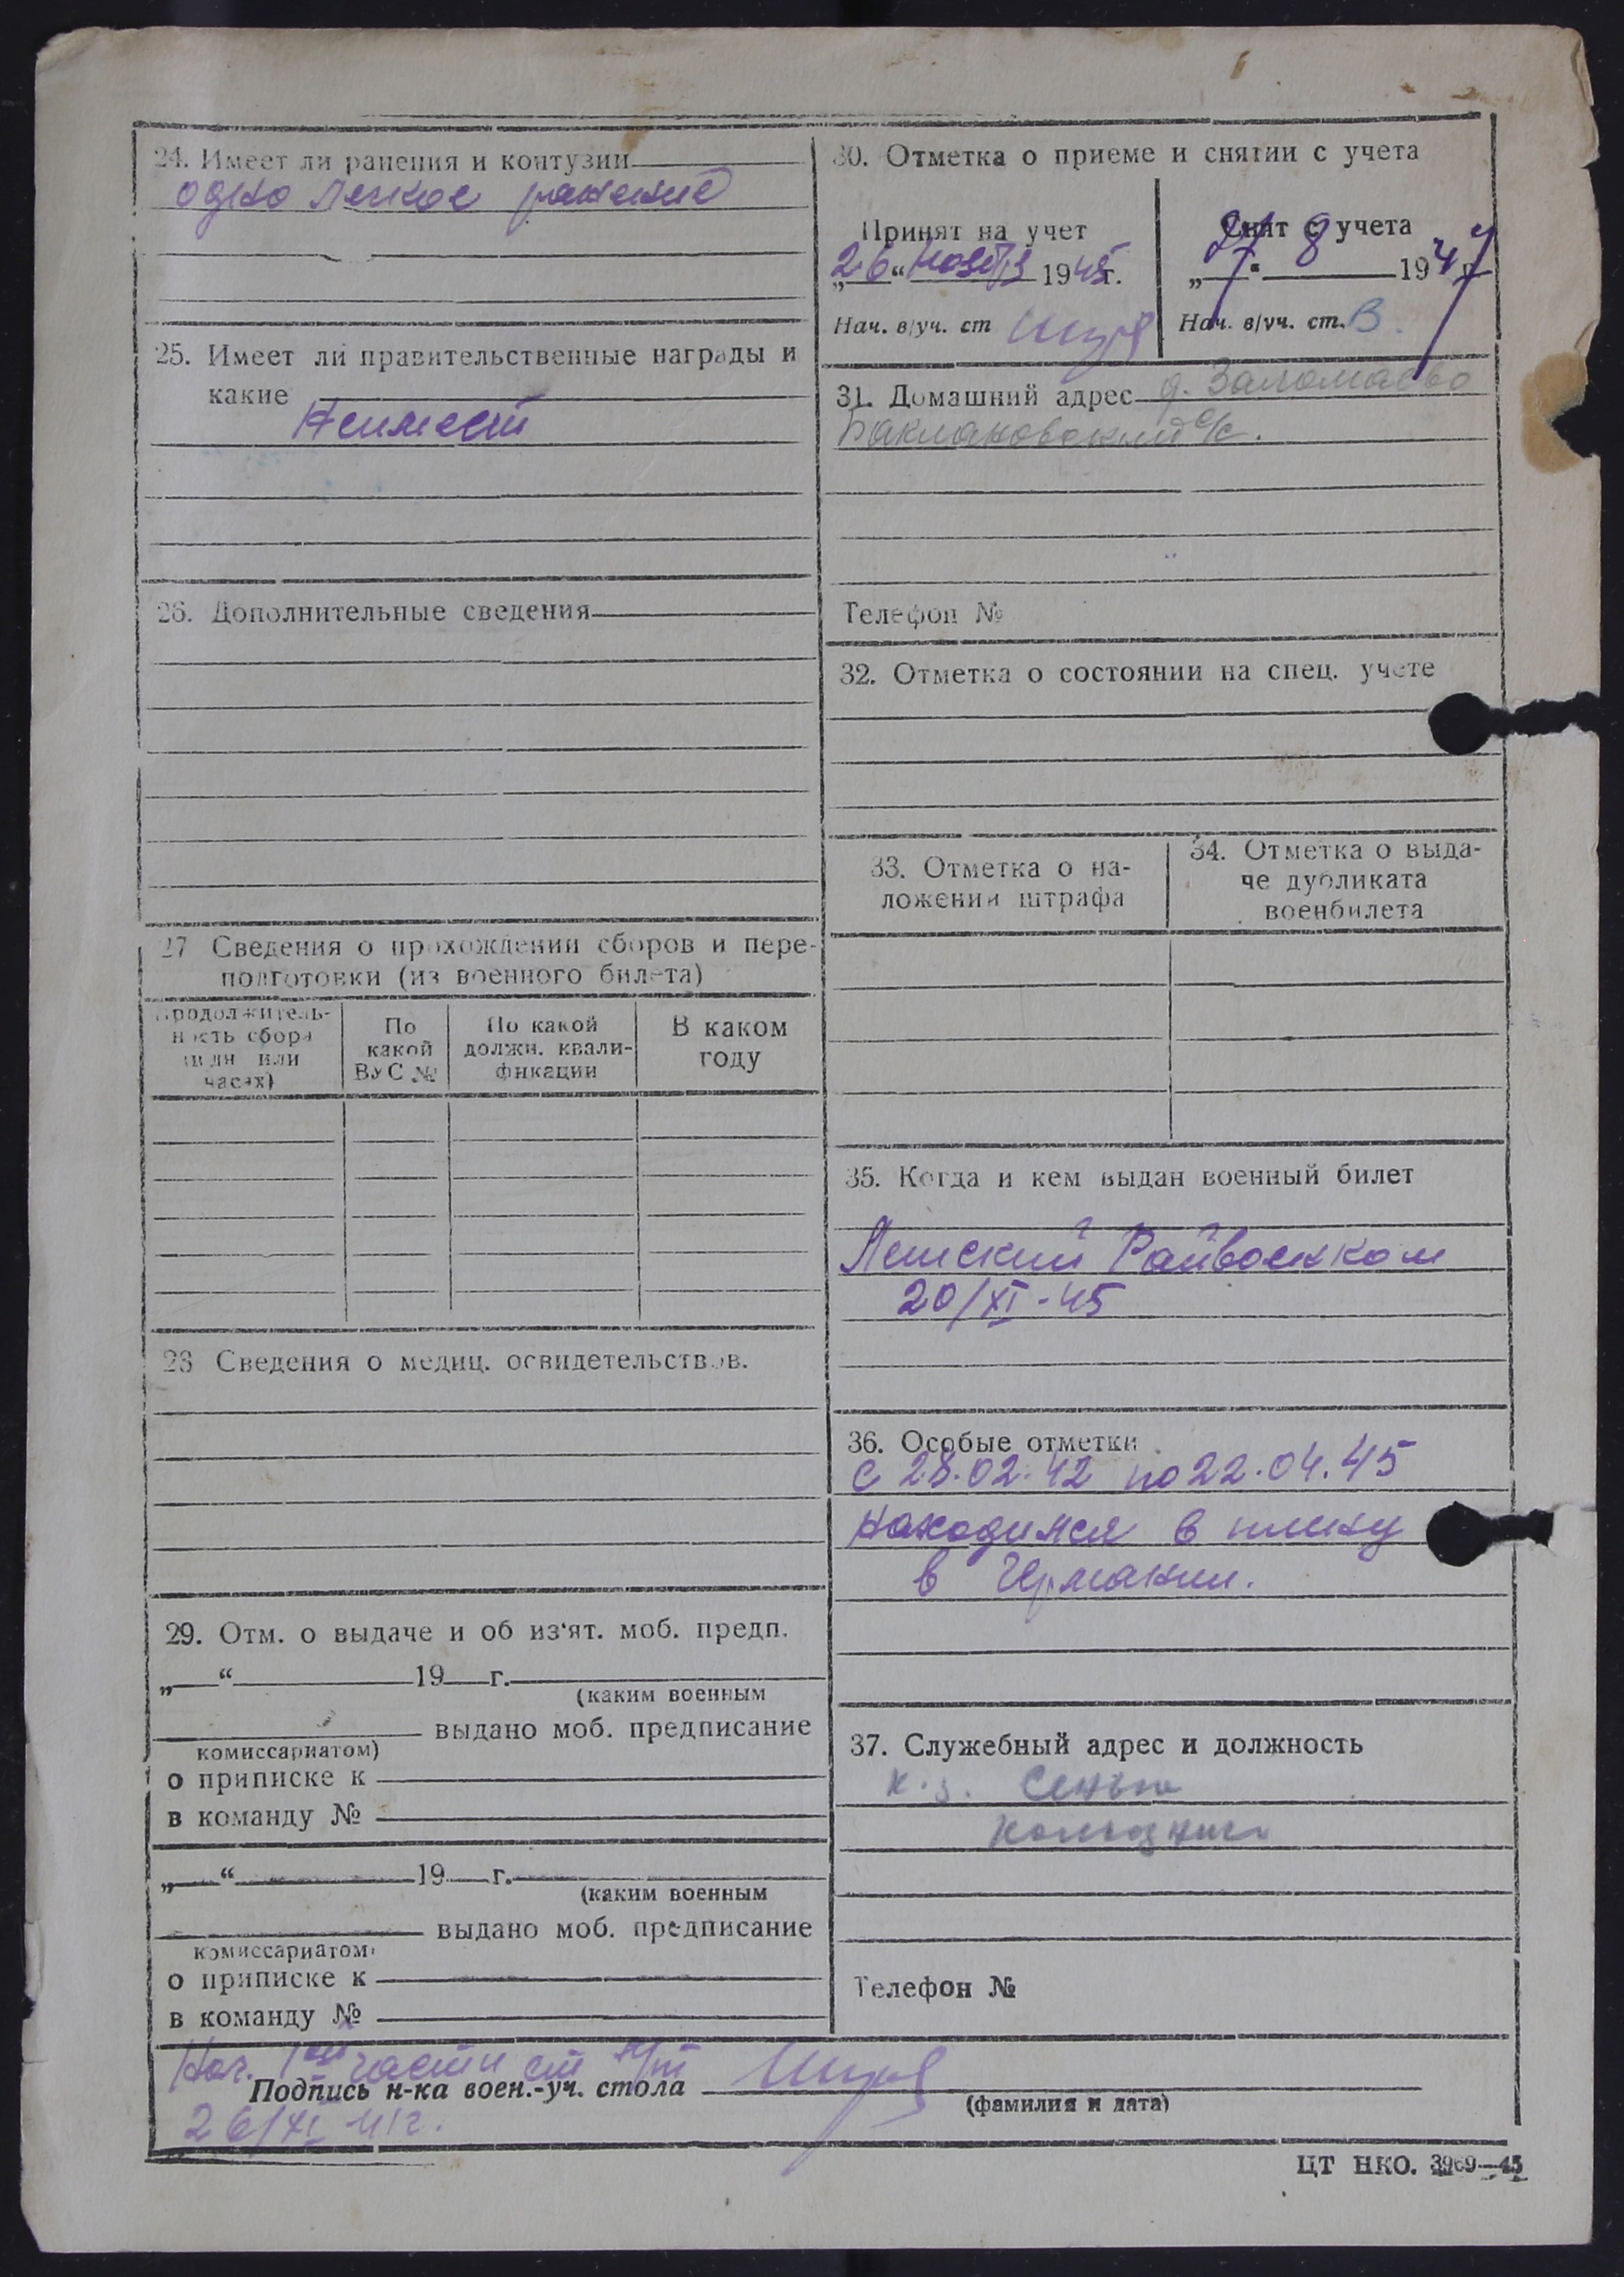 24. Имеет ли ранения и контузии
одно легкое ранение
25. Имеет ли правительственные награды и
какие
Неимеет
26. Дополнительные сведения
27 Сведения о прохождении сборов и пере-
подготовки (из военного билета)
Продолжитель-
ность сбора
(в дн или
часах)
По
какой
ВУС №
По какой
должн. квали-
фикации
В каком
году
28 Сведения о медиц. освидетельствов.
29. Отм. о выдаче и об из‘ят. моб. предп.
„ “ 19 г.
(каким военным
выдано моб. предписание
комиссариатом)
о приписке к
в команду №
„ “ 19 г.
(каким военным
выдано моб. предписание
комиссариатом)
о приписке к
в команду №
30. Отметка о приеме и снятии с учета
Принят на учет
„26“ Ноября 1945г.
Нач. в/уч. ст
Снят с учета
„27“ 8 1947г
Нач. в/уч. ст.
31. Домашний адрес д. Заломаево
Баклановский с/с.
Телефон №
32. Отметка о состоянии на спец. учете
33. Отметка о на-
ложении штрафа
34. Отметка о выда-
че дубликата
военбилета
35. Когда и кем выдан военный билет
Райвоенком
20/XI-45
36. Особые отметки
с 28.02.42 по 22.04.45
Находился в плену
в Германии.
37. Служебный адрес и должность
к-з.
колхозник
Телефон №
Нач. 1ой части ст л/т
Подпись н-ка воен.-уч. стола
(фамилия и дата)
26/XI
ЦТ НКО. 3969—45